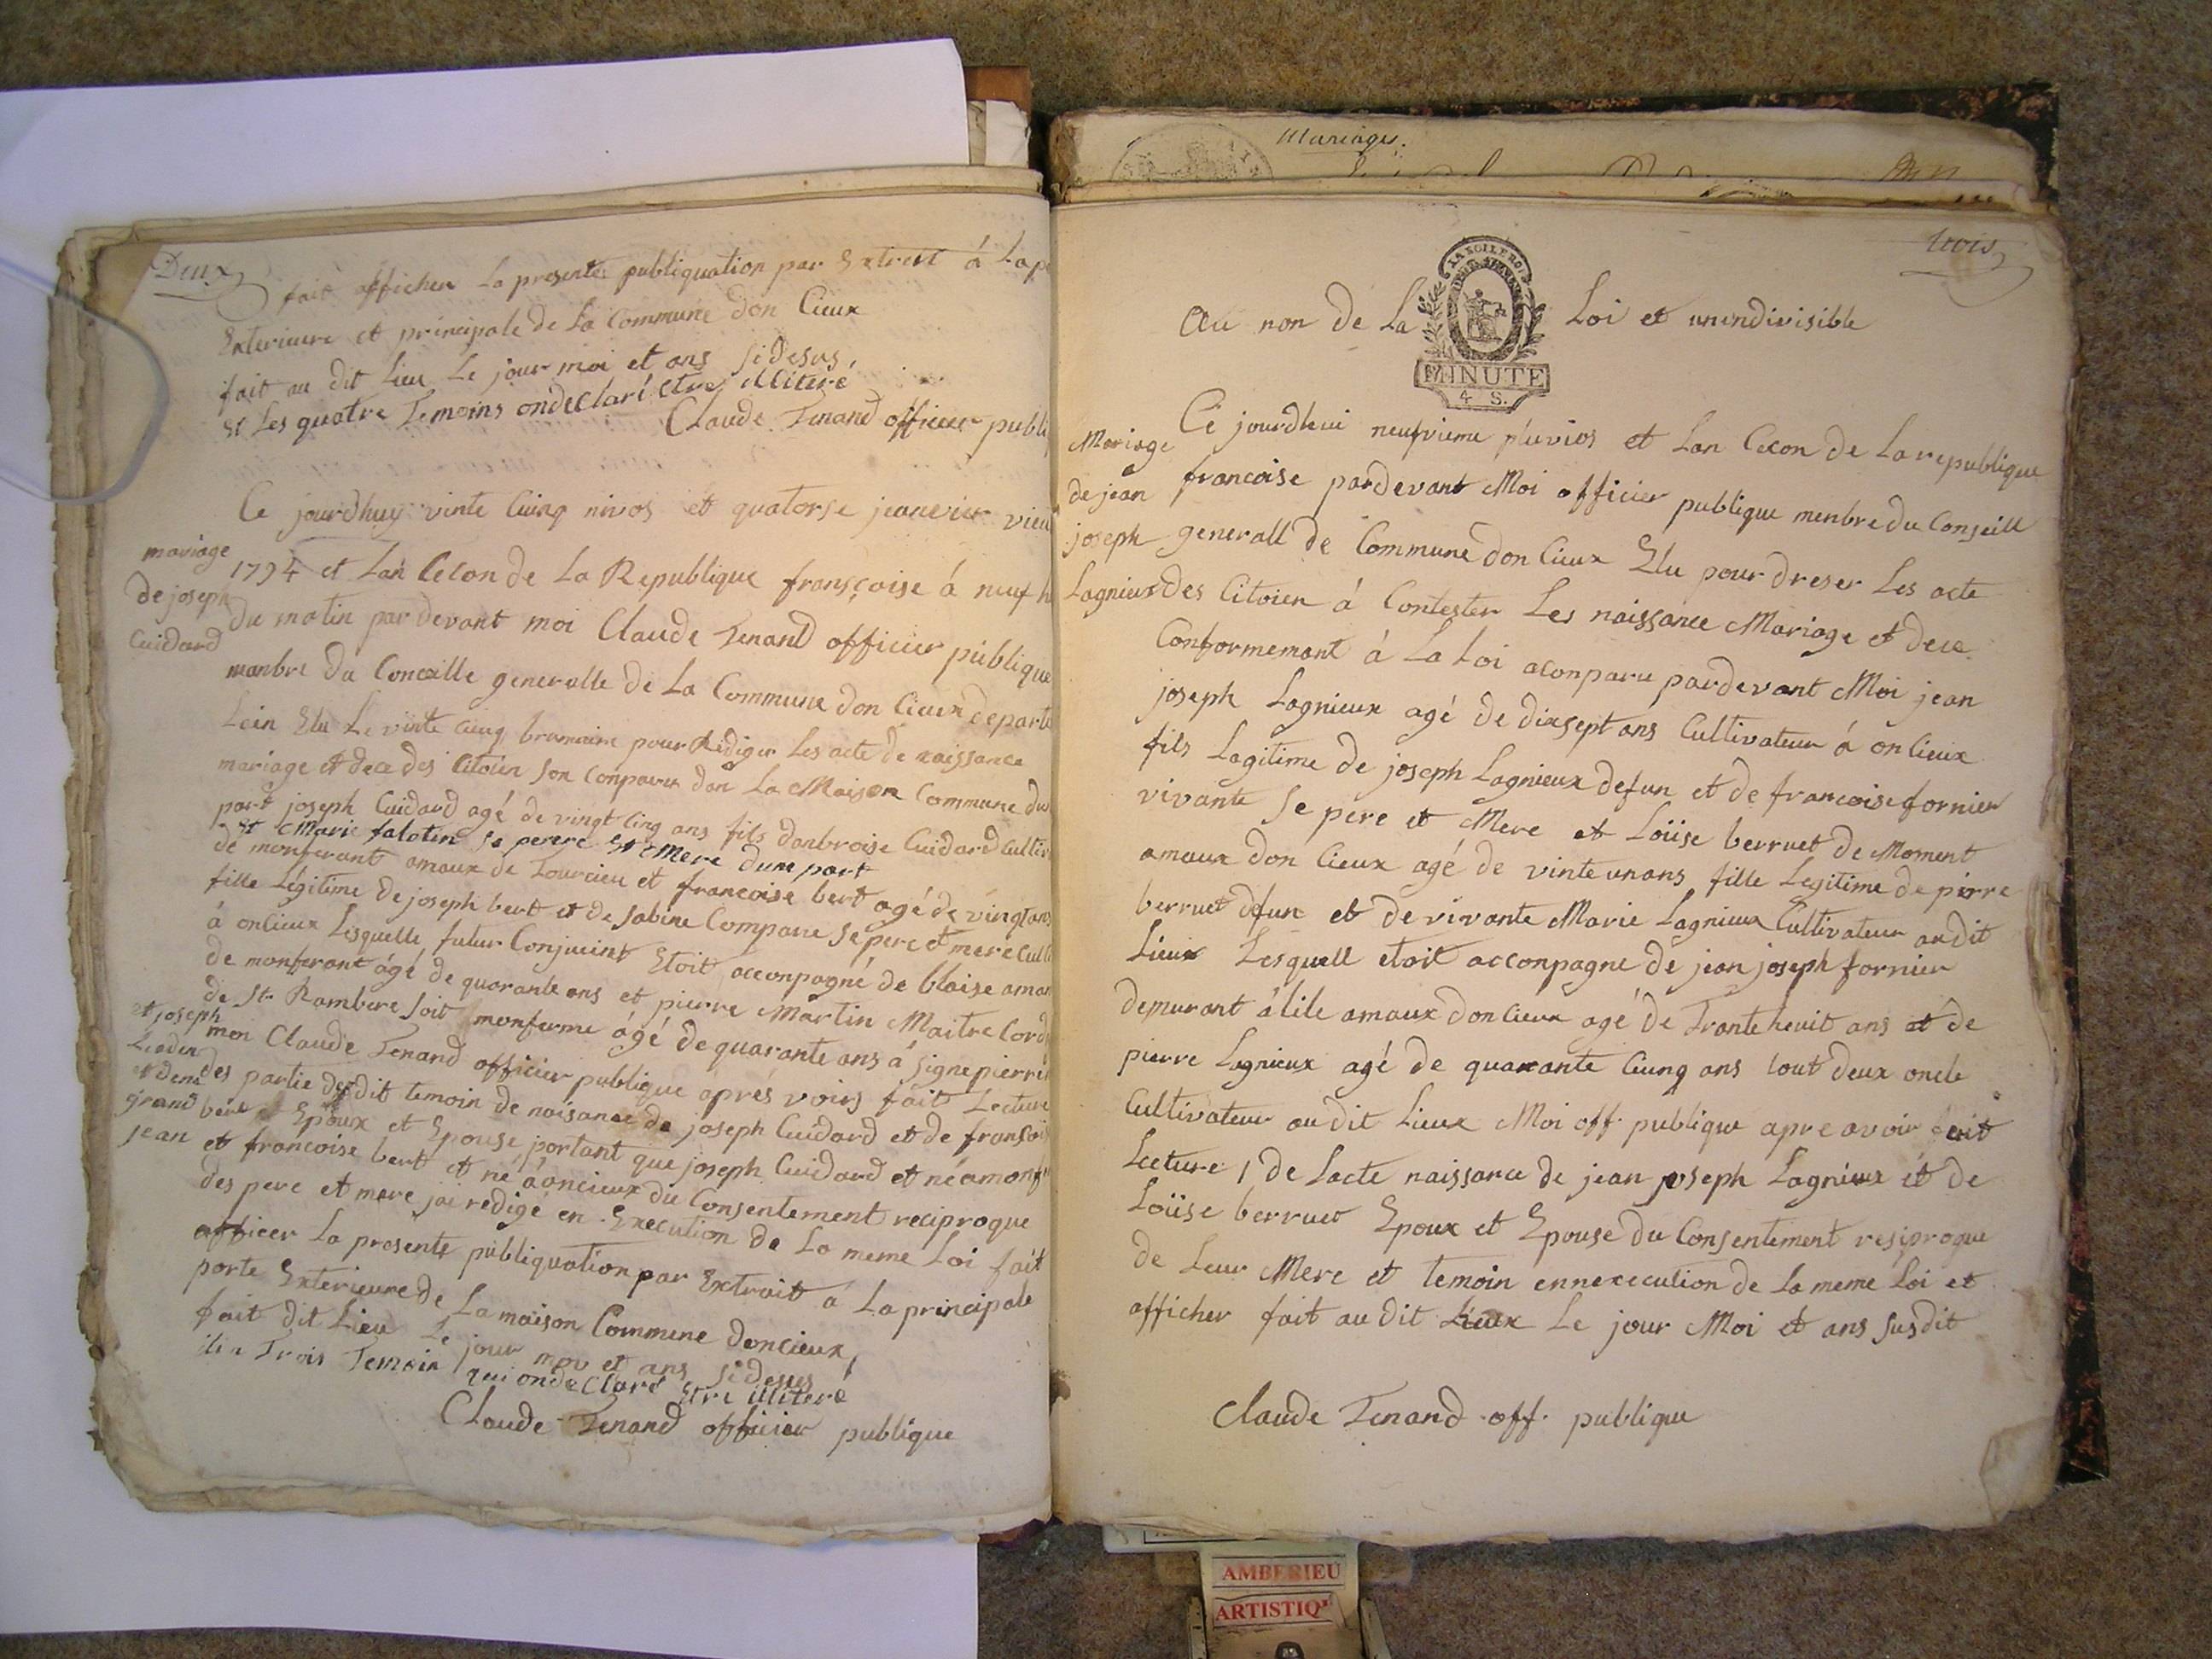 Deux
fait afficher La presente publiquation par Extrest á La
Exterieure et principale de La Commune don Cieux
fait au dit Lieu Le jour moi et ans si desus,
Et Les quatre Temoins ondeclaré etre illiteré
Claude Tenand officier publi
mariage
de joseph
Cuidard
Ce jourdhuy vinte Cinq nivos et quatorse jeanvier vieu
1794 et Lan Cecon de La Republique françoise á neuf h
du matin pardevant moi Claude Tenand officier publique
manbre du Conceille generalle de La Commune don Cieux departe
Lein Elu Le vinte Cinq brumaire pour Rediger Les acte de naissance
mariage et dece des Citoien son conparu dan La Maison Commune du
part joseph Cuidard agé de vingt Cinq ans fils danbroise Cuidard Cultiv
Et Marie falatin se perere Et Mere dune part
de monferant amaux de Tourcieu et francoise bert agé de vingt ans
fille Légitime de joseph bert et de Sabine Compane se pere et mere Culti
á onCieux Lesquelle futur Conjueint Etoit acconpagné de blaise aman
de monferant ágé de quarante ans et pierre Martin Maitre Cord
de St Rambere soit monferme ágé de quarante ans á signe pierre
et joseph
grand
jean
moi Claude Tenand officier publique aprés voirs fait Lecture
des partie dudit temoin de naisance de joseph Cuidard et de fransois
bert Epoux et Epouse portant que joseph Cuidard et né á monf
et francoise bert et né á oncieux du Consentement reciproque
des pere et mere jai redigé en Execution de La meme Loi fait
afficer La presente publiquation par Extrait á La principale
porte Exterieure de La maison Commune doncieux,
fait dit Lieu Le jour mov et ans si desus
Trois Temoin qui ondeclaré Etre illiteré
Claude Tenand officier publique
Mariages.
trois
LA LOI LE ROI
Au non de La Loi et unindivisible
MINUTE
4 S.
Mariage
de jean
joseph
Lagnieux
Ce jourdhui neufvieme pluvios et Lan Cecon de La republique
francoise pardevant Moi officier publique menbre du Conseill
generall de Commune don Cieux Elu pour dreser Les acte
des Citoien á Contester Les naissance Mariage et dece
Conformemant á La Loi aconparu pardevant Moi jean
joseph Lagnieux agé de dixsept ans Cultivateur á on Cieux
fils Lagitime de joseph Lagnieux defun et de francoise fornier
vivante se pere et Mere et Loüise berruet de Moment
amaux don Cieux agé de vinte unans fille Legitime de pierre
berruet dfun et de vivante Marie Lagnieux Cultivateur audit
Lieux Lesquell etoit acconpagne de jean joseph fornier
demurant á lile amaux don Cieux agé de Trante heuit ans et de
pierre Lagnieux agé de quarante Cinq ans tout deux oncle
Cultivateur au dit Lieux Moi off. publique apre avoir feit
Lecture de Lacte naissance de jean joseph Lagnieux et de
Loüise berruet Epoux et Epouse du Consentement resiproque
de Leur Mere et temoin ennexecution de La meme Loi et
afficher fait au dit Lieux Le jour Moi et ans susdit
Claude Tenand off. publique
AMBERIEU
ARTISTIQ